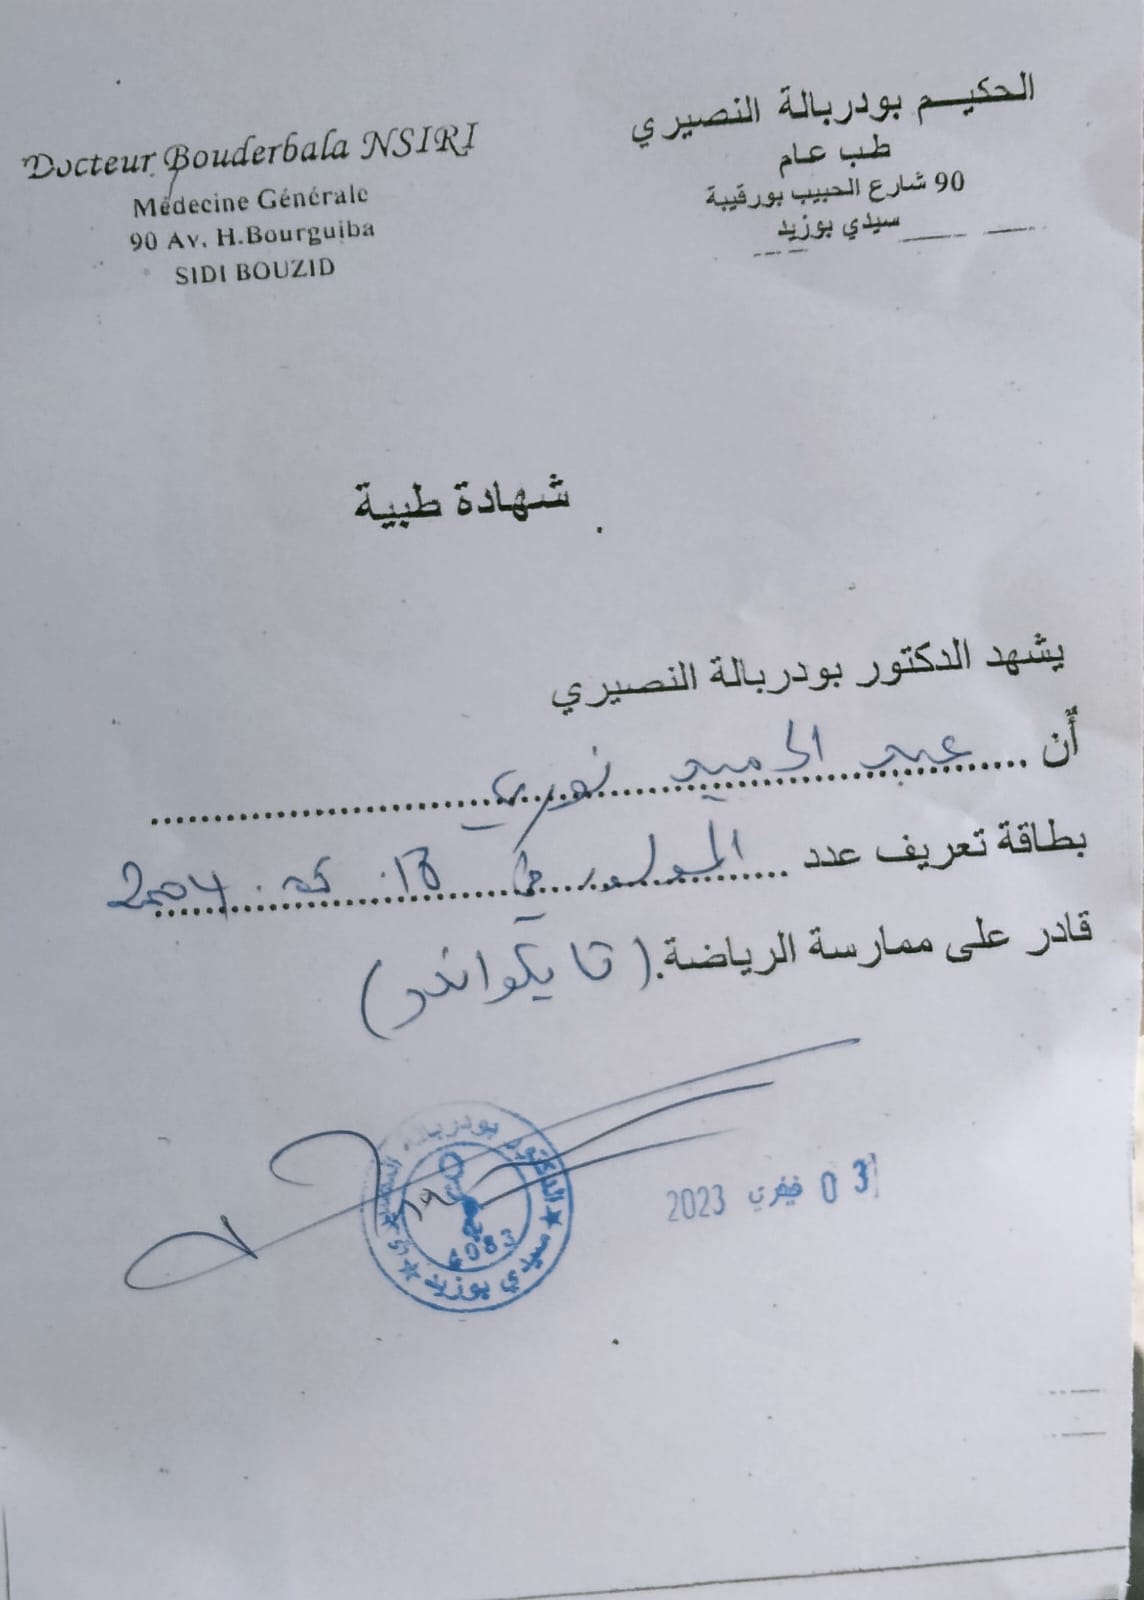 Docteur Bouderbala NSIRI
Médecine Générale
90 Av. H.Bourguiba
SIDI BOUZID
الحكيم بودربالة النصيري
طب عام
90 شارع الحبيب بورقيبة
سيدي بوزيد
شهادة طبية
يشهد الدكتور بودربالة النصيري
أن عبد الحميد نوري
بطاقة تعريف عدد المولود في 13. 2004
قادر على ممارسة الرياضة. (تايكواندو)
03 فيفري 2023
الدكتور بودربالة
سيدي بوزيد